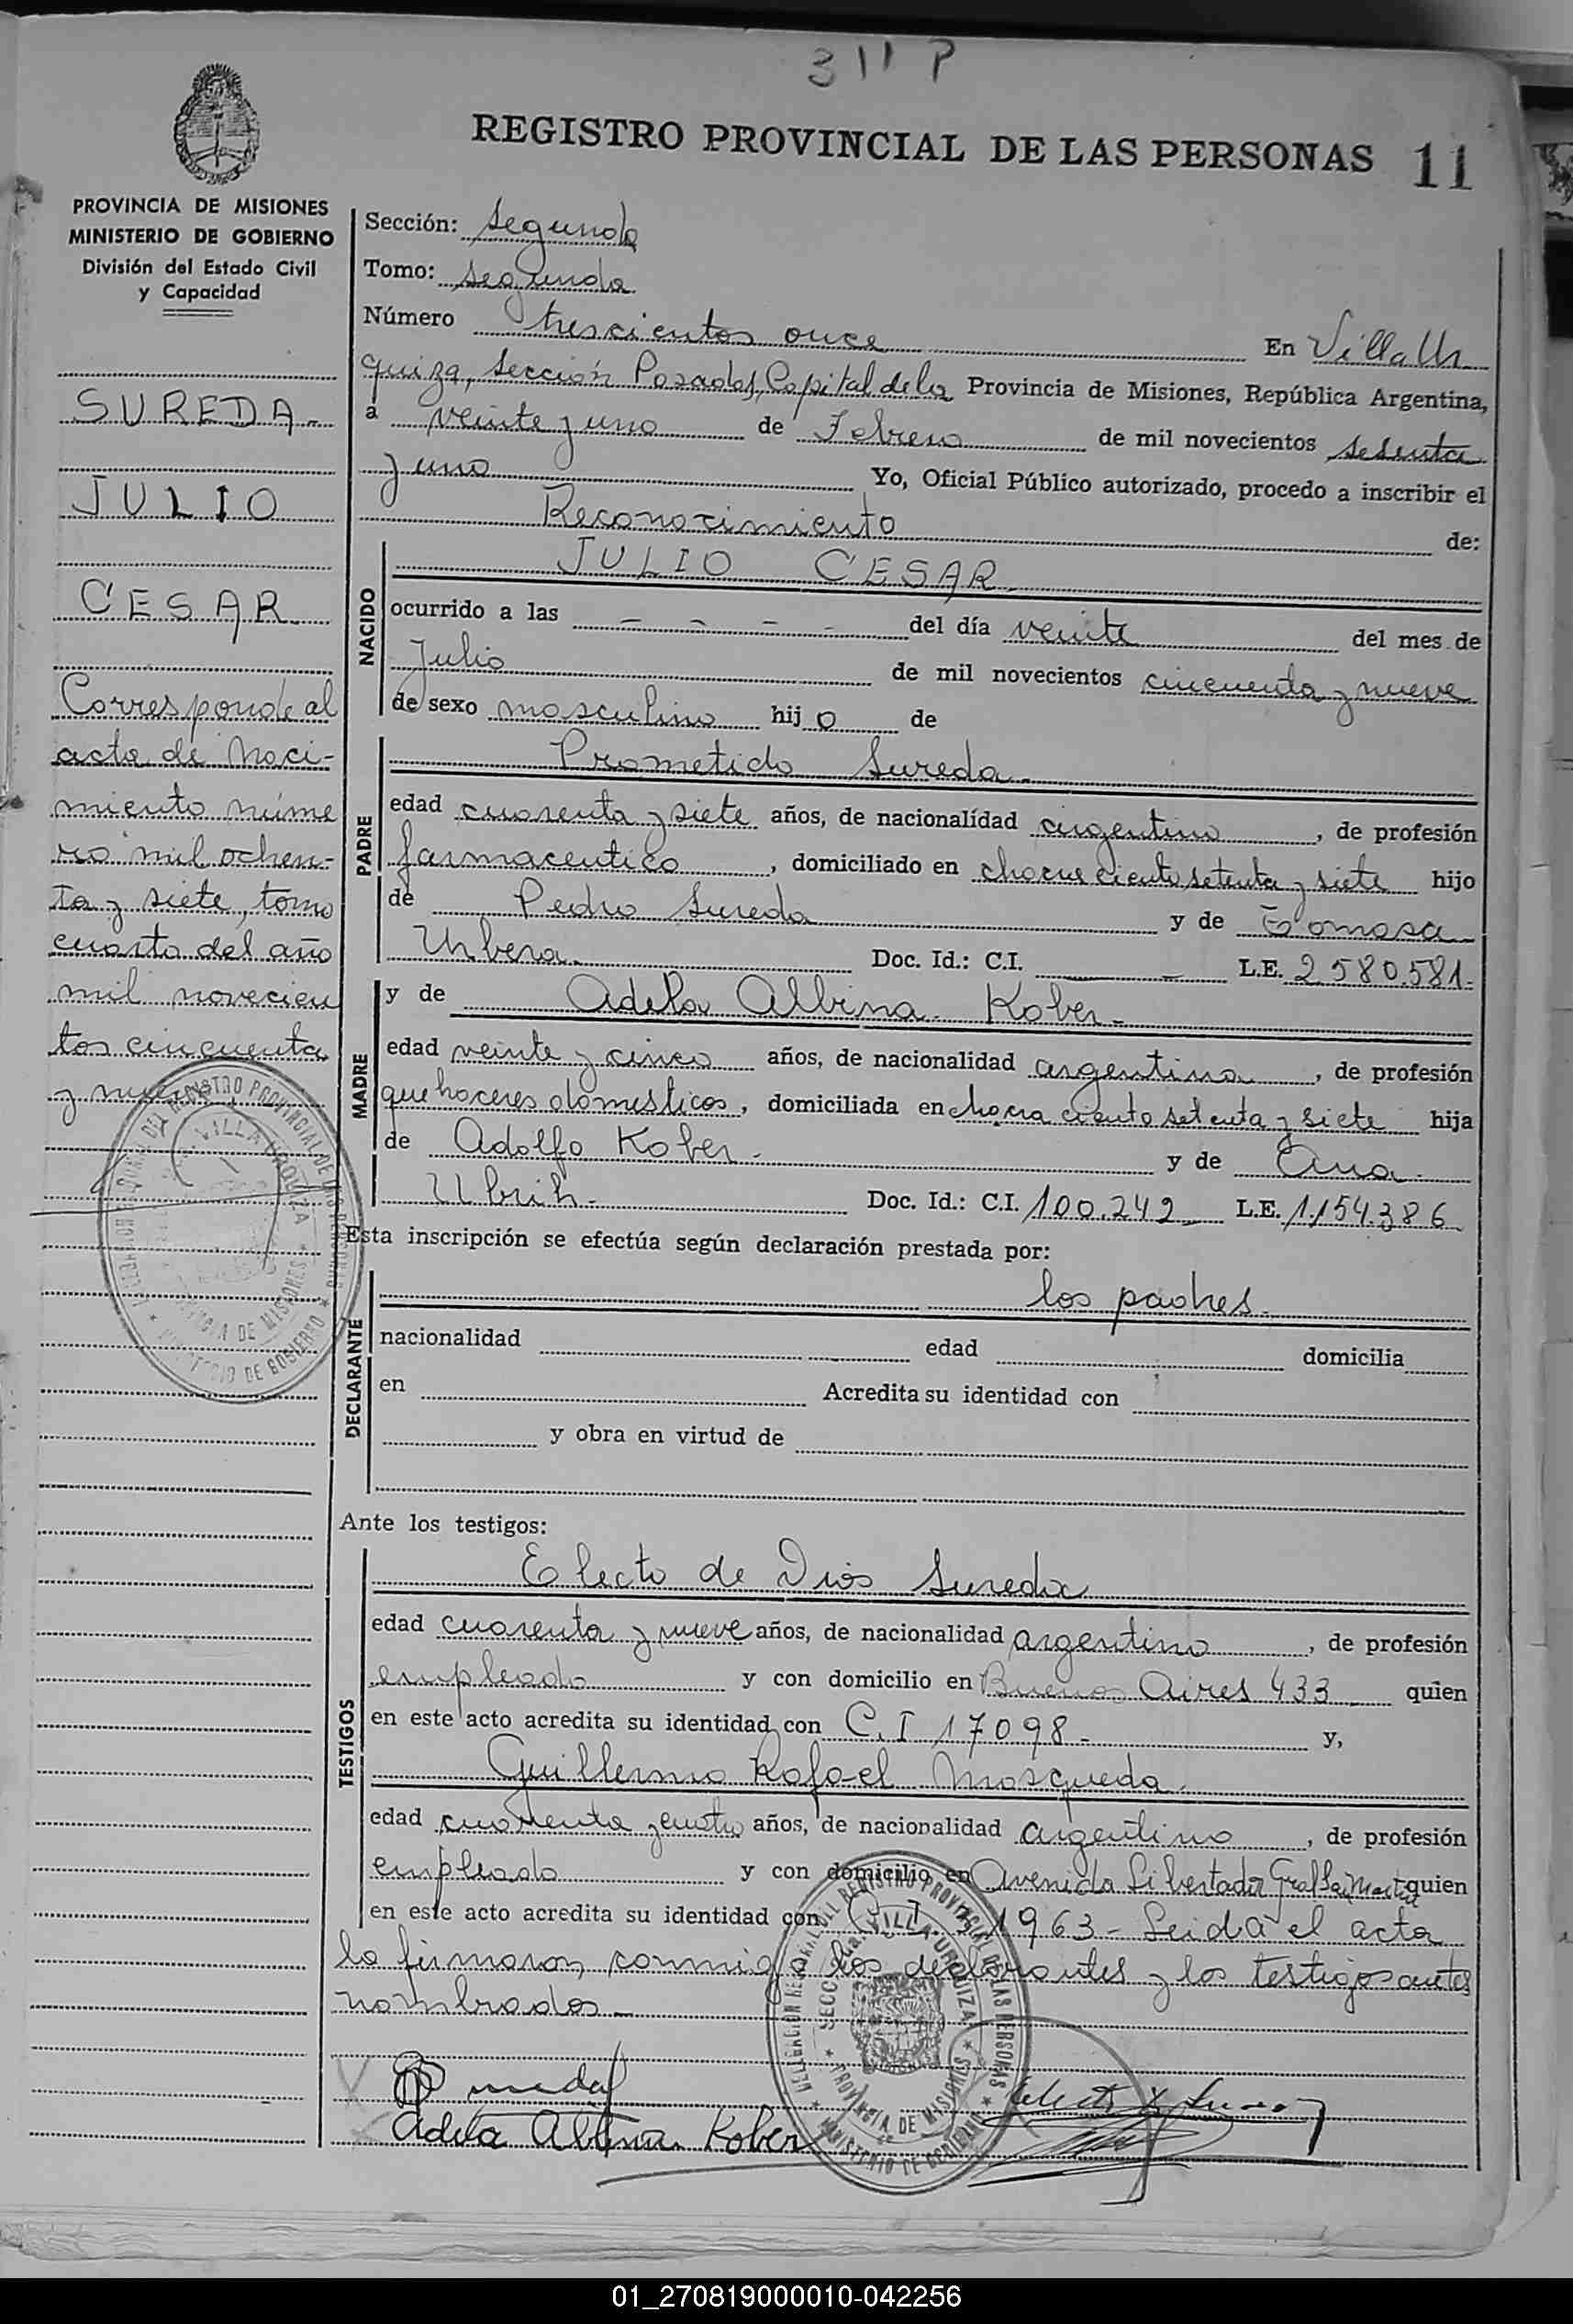 311 P
REGISTRO PROVINCIAL DE LAS PERSONAS 11
PROVINCIA DE MISIONES
MINISTERIO DE GOBIERNO
División del Estado Civil
y Capacidad
SUREDA.-
JULIO
CESAR.
Corresponde al
acta de Naci-
miento núme
ro mil ochen-
ta y siete, tomo
cuarto del año
mil novecien
tos cincuenta
y nueve
Sección: segunda
Tomo: segunda
Número trescientos once En Villa Ur
quiza, Sección Posadas, Capital de la Provincia de Misiones, República Argentina,
a veinte y uno de Febrero de mil novecientos sesenta
y uno Yo, Oficial Público autorizado, procedo a inscribir el
Reconocimiento de:
NACIDO
JULIO CESAR
ocurrido a las - - - - del día veinte del mes de
Julio de mil novecientos cincuenta y nueve
de sexo masculino hijo de
PADRE
Prometido Sureda.-
edad cuarenta y siete años, de nacionalidad argentino, de profesión
farmaceutico, domiciliado en chacra ciento setenta y siete hijo
de Pedro Sureda y de Tomasa
Urbera. Doc. Id.: C.I. - L.E. 2.580.581.-
MADRE
y de Adela Albina Kober.-
edad veinte y cinco años, de nacionalidad argentina, de profesión
quehaceres domesticos, domiciliada en chacra ciento setenta y siete hija
de Adolfo Kober.- y de Ana
Ulrich.- Doc. Id.: C.I. 100.242 L.E. 1.154.386
Esta inscripción se efectúa según declaración prestada por:
DECLARANTE
los padres.
nacionalidad edad domicilia
en Acredita su identidad con
y obra en virtud de
Ante los testigos:
TESTIGOS
Electo de Dios Sureda
edad cuarenta y nueve años, de nacionalidad argentino, de profesión
empleado y con domicilio en Buenos Aires 433 quien
en este acto acredita su identidad con C.I 17098.- y,
Guillermo Rafael Mosqueda
edad cuarenta y cuatro años, de nacionalidad argentino, de profesión
empleado y con domicilio en Avenida Libertador Gral San Martin quien
en este acto acredita su identidad con C.I. 1963- Leida el acta
la firmaron conmigo los declarantes y los testigos antes
nombrados.-
Adela Albina Kober
DELEGACION REGIONAL DEL REGISTRO PROVINCIAL DE LAS PERSONAS
SECC. VILLA URQUIZA
PROVINCIA DE MISIONES
MINISTERIO DE GOBIERNO
01_270819000010-042256